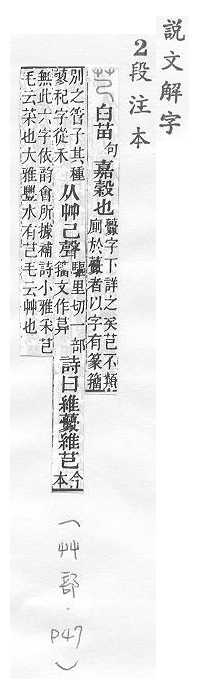 說文解字
2段注本
芑 白苗 句 嘉穀也
虋字下詳之矣芑不類
廁於虋者以字有篆籒
別之管子其種
蓼 字從禾
从艸己聲
驅里切一部
籒文作
詩曰維虋維芑
今
本
無此六字依韵會所據補詩小雅采芑
毛云菜也大雅豐水有芑毛云艸也
(艸部.P47)